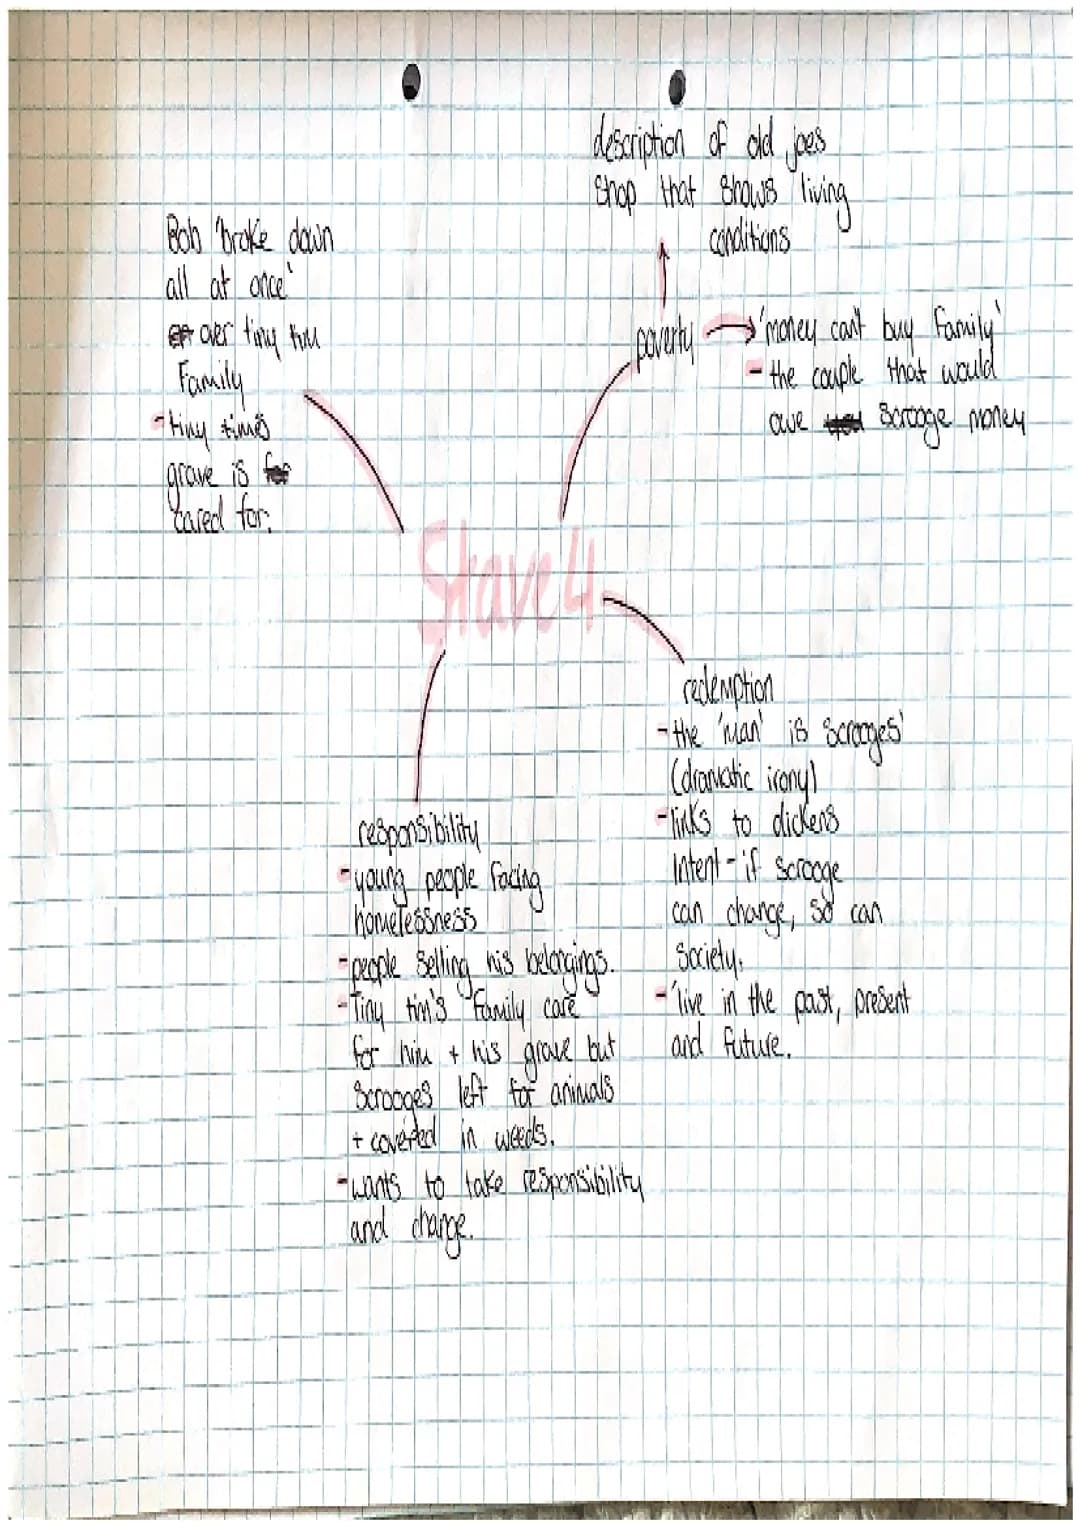 description of old joes
shop that shows living
conditions
Bob 'broke down
all at once'
over tiny tim
Family
- tiny times
grave is
cared for.
poverty → 'money can't buy family'
- the couple that would
owe Scrooge money
Stave 4
redemption
- the 'man' is scrooges'
(dramatic irony)
- links to dickens
intent - if scrooge
can change, so can
society.
- 'live in the past, present
and future.
responsibility
- young people facing
homelessness
- people selling his belongings.
- Tiny tim's family care
for him + his grave but
scrooges left for animals
+ covered in weeds.
- wants to take responsibility
and change.